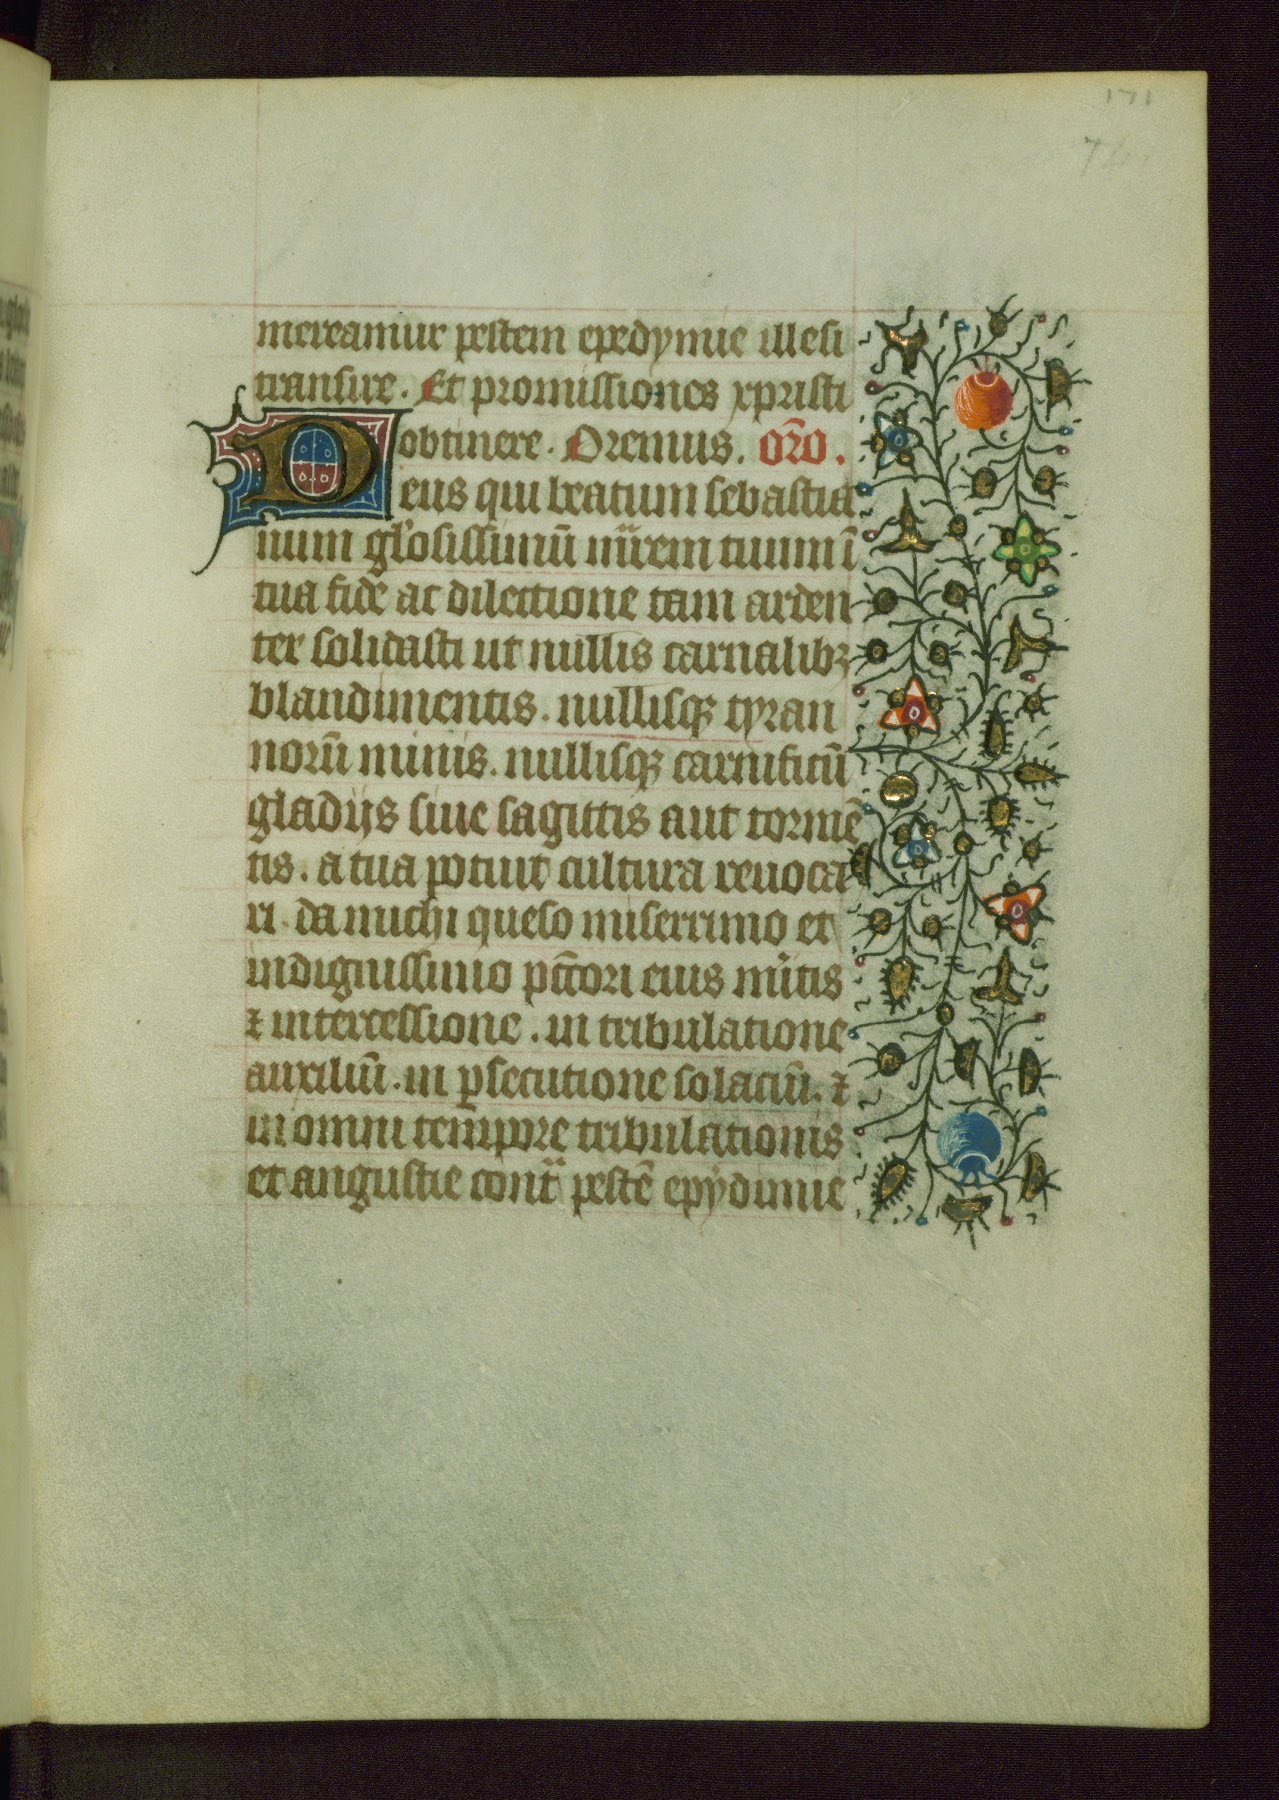 171
mereamur pestem epedymie illesi
transire. Et promissiones xpristi
obtinere. Oremus. or̄o.
Deus qui beatum sebastia
num gl'osissimū mr̄em tuum ī
tua fide ac dilectione tam arden
ter solidasti ut nullis carnalibꝫ
blandimentis. nullisqꝫ tyran
norū minis. nullisqꝫ carnificū
gladijs siue sagittis aut tormē
tis. a tua potuit cultura reuoca
ri. da michi queso miserrimo et
indignissimo pcc̄ori eius mr̄itis
⁊ intercessione. in tribulatione
auxiliū. in ꝑsecutione solaciū. ⁊
in omni tempore tribulationis
et angustie contͣ pestē epydimie